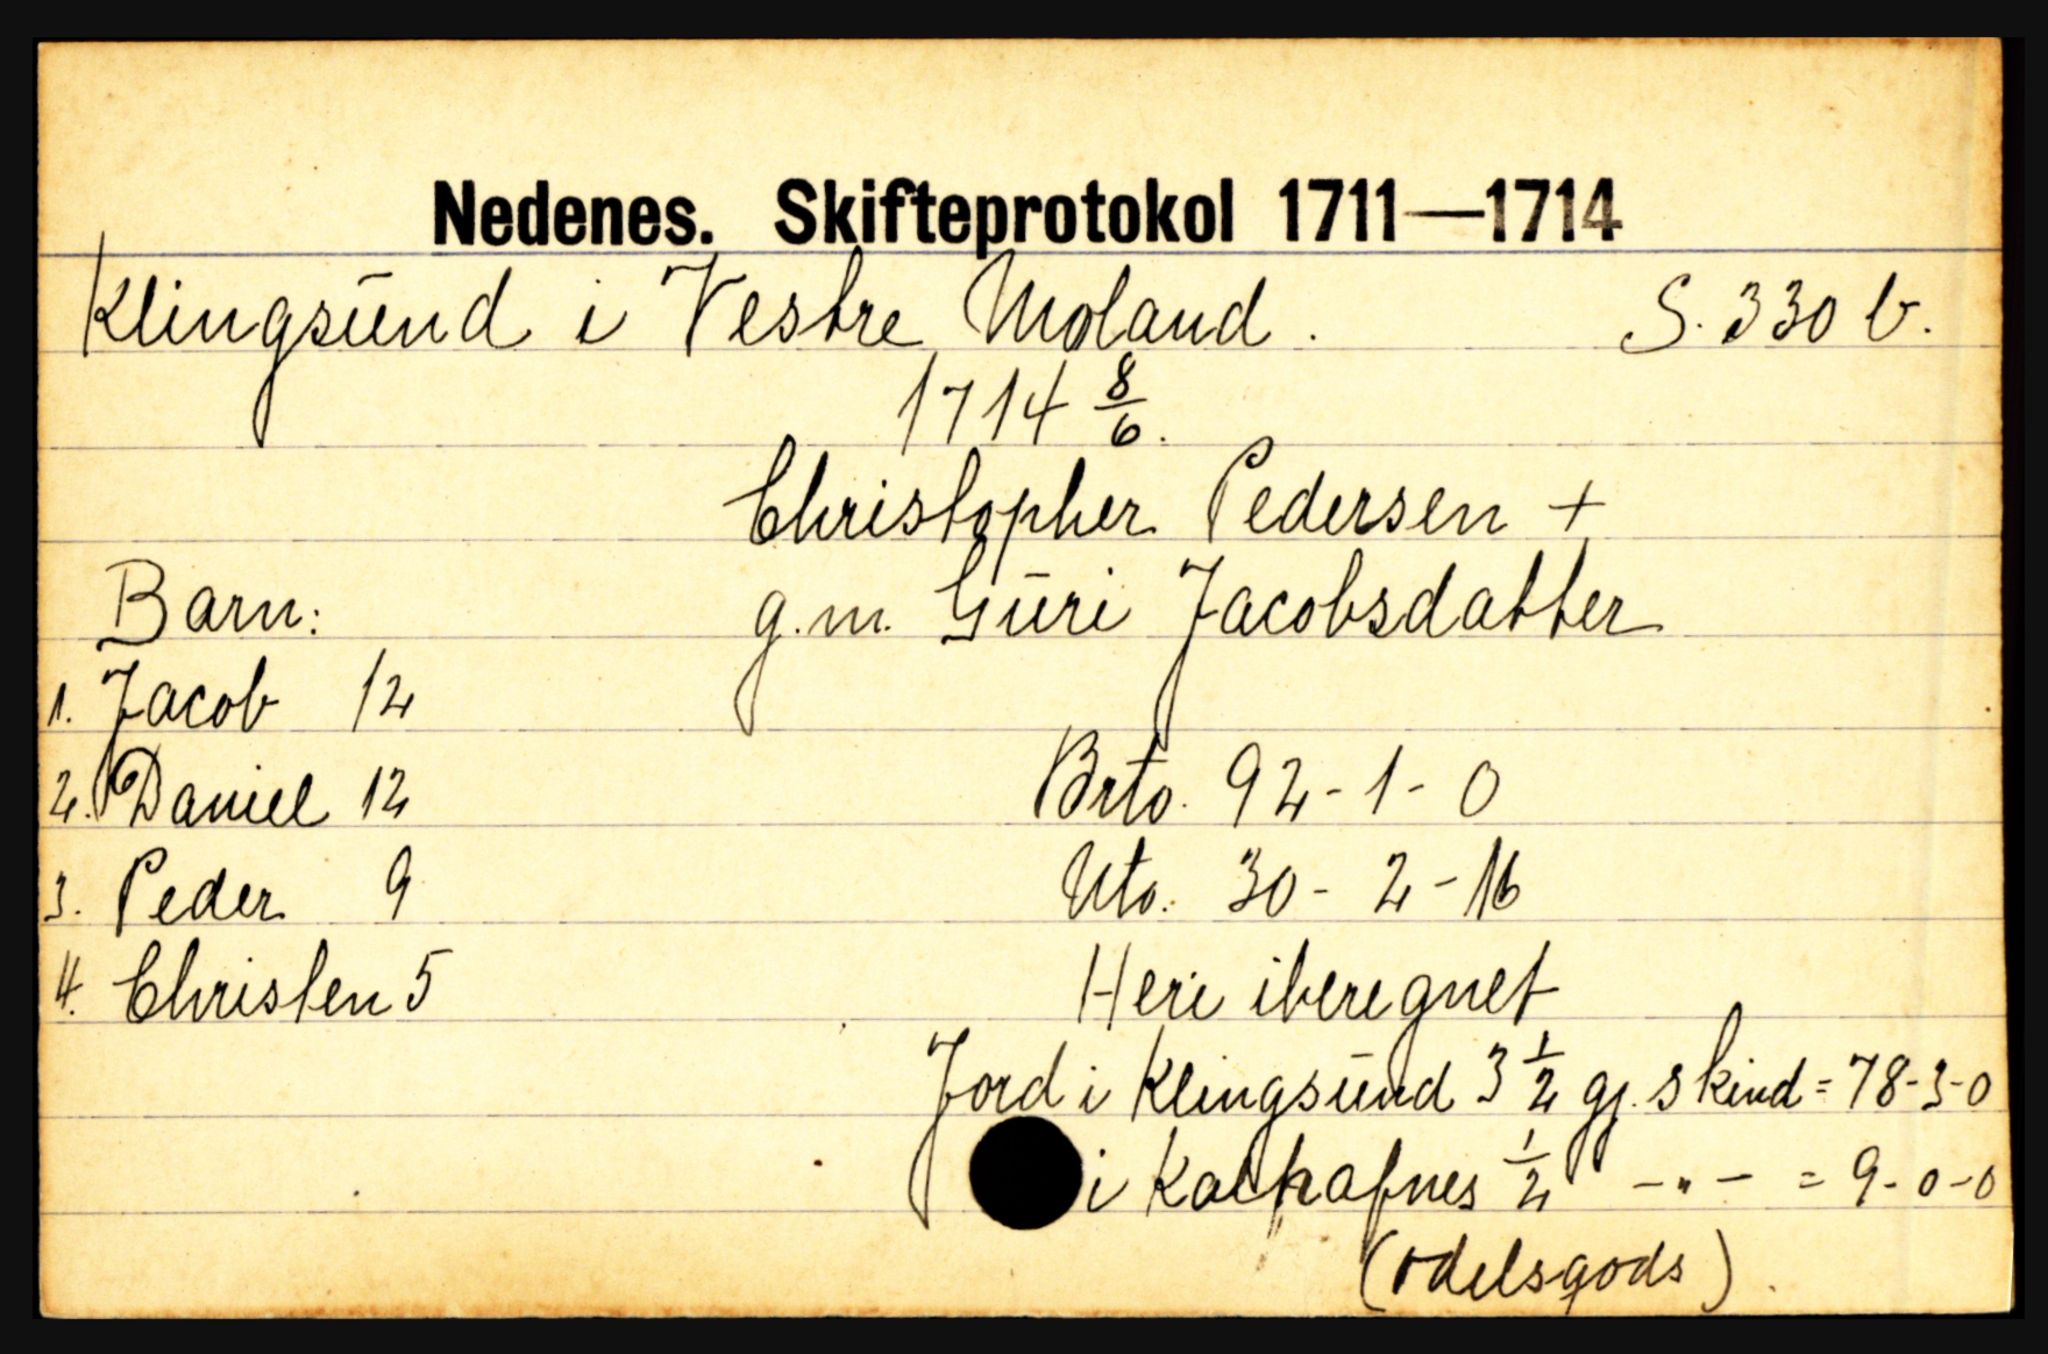 Nedenes. Skifteprotokol 1711—1714
Klingsund i Vestre Moland. S. 330 b.
1714 8/6.
Christopher Pedersen +
Barn: g.m. Guri Jacobsdatter
1. Jacob 12
2. Daniel 12 Brto. 92-1-0
3. Peder 9 Uto. 30-2-16
4. Christen 5 Heri iberegnet
Jord i Klingsund 3 1/2 gj. skind = 78-3-0
i Kalhafnes 1/2 -"- = 9-0-0
(odelsgods).